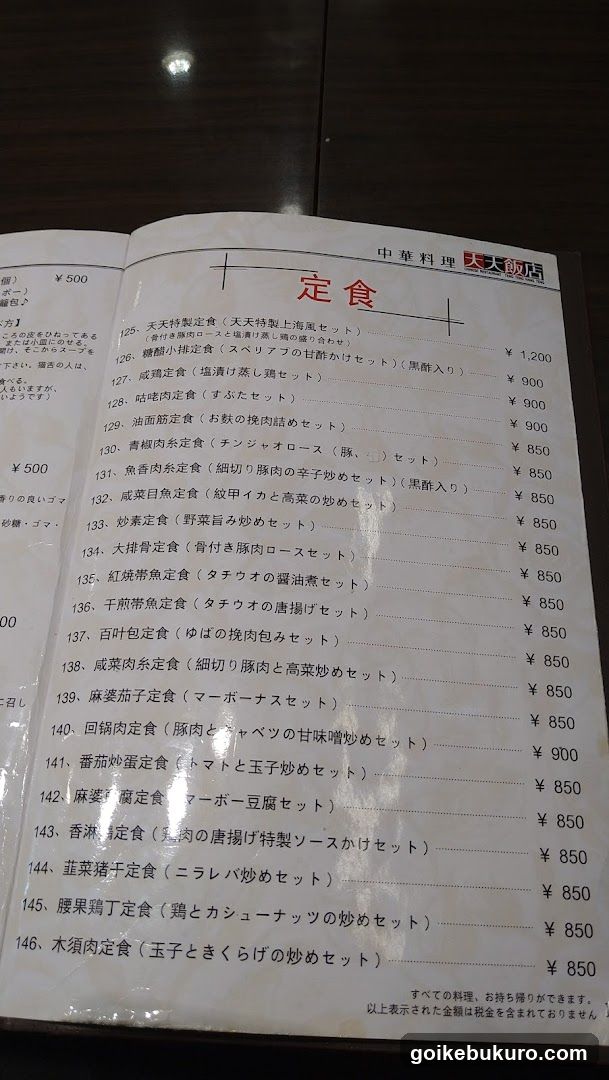 個）
¥500
ポー）
籠包♪
方】
ころの皮をひねってある
または小皿にのせる。
開け、そこからスープを
下さい。猫舌の人は、
食べる。
人もいますが、
いようです）
¥500
香りの良いゴマ
砂糖・ゴマ・
00
に召し
中華料理 天天飯店
定食
125、天天特製定食（天天特製上海風セット） ¥1,200
（骨付き豚肉ロースと塩漬け蒸し鶏の盛り合わせ）
126、糖醋小排定食（スペリアブの甘酢かけセット）（黒酢入り） ¥900
127、咸鶏定食（塩漬け蒸し鶏セット） ¥900
128、咕咾肉定食（すぶたセット） ¥900
129、油面筋定食（お麩の挽肉詰めセット） ¥850
130、青椒肉糸定食（チンジャオロース（豚、）セット） ¥850
131、魚香肉糸定食（細切り豚肉の辛子炒めセット）（黒酢入り） ¥850
132、咸菜目魚定食（紋甲イカと高菜の炒めセット） ¥850
133、炒素定食（野菜旨み炒めセット） ¥850
134、大排骨定食（骨付き豚肉ロースセット） ¥850
135、紅焼帯魚定食（タチウオの醤油煮セット） ¥850
136、干煎帯魚定食（タチウオの唐揚げセット） ¥850
137、百叶包定食（ゆばの挽肉包みセット） ¥850
138、咸菜肉糸定食（細切り豚肉と高菜炒めセット） ¥850
139、麻婆茄子定食（マーボーナスセット） ¥850
140、回锅肉定食（豚肉とキャベツの甘味噌炒めセット） ¥900
141、番茄炒蛋定食（トマトと玉子炒めセット） ¥850
142、麻婆豆腐定食（マーボー豆腐セット） ¥850
143、香淋鶏定食（鶏肉の唐揚げ特製ソースかけセット） ¥850
144、韮菜猪干定食（ニラレバ炒めセット） ¥850
145、腰果鶏丁定食（鶏とカシューナッツの炒めセット） ¥850
146、木須肉定食（玉子ときくらげの炒めセット） ¥850
すべての料理、お持ち帰りができます。
以上表示された金額は税金を含まれておりません
goikebukuro.com